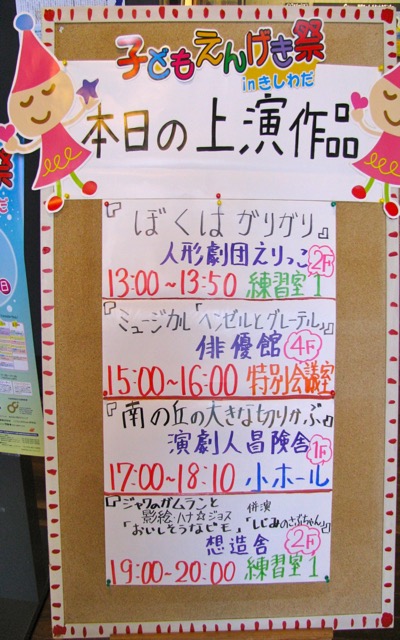 子どもえんげき祭
inきしわだ
本日の上演作品
『ぼくはガリガリ』
人形劇団えりっこ 2F
13:00~13:50 練習室1
ミュージカル「ヘンゼルとグレーテル」
俳優館 4F
15:00~16:00 特別会議室
『南の丘の大きな切りかぶ』
演劇人冒険舎 1F
17:00~18:10 小ホール
『ジャワのガムランと 併演
影絵・ハナ☆ジョス
「おいしそうなじモ」 「しじみのさぶちゃん」』
想造舎 2F
19:00~20:00 練習室1